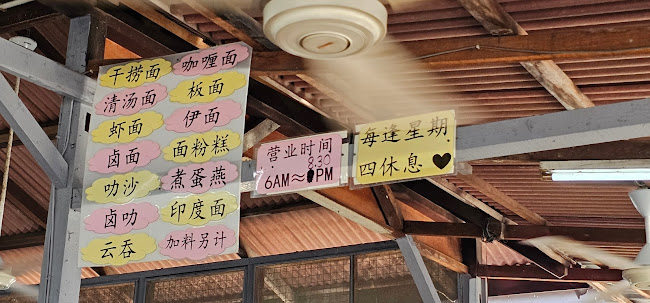 干捞面
咖喱面
清汤面
板面
虾面
伊面
卤面
面粉糕
叻沙
煮蛋燕
卤叻
印度面
云吞
加料另计
营业时间
8.30
6AM≈PM
每逢星期
四休息♥